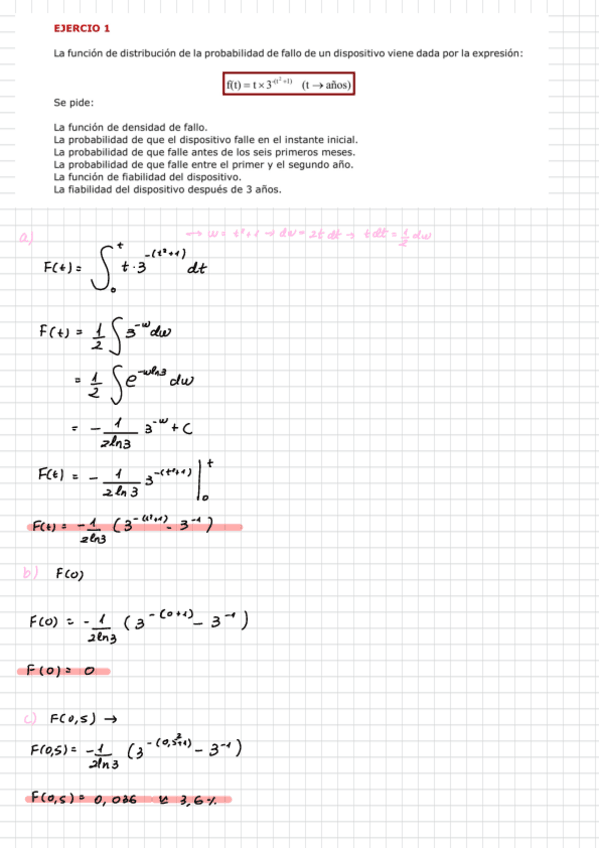 EJERCIO 1
La función de distribución de la probabilidad de fallo de un dispositivo viene dada por la expresión:
f(t) = t × 3^-(t²+1) (t → años)
Se pide:
La función de densidad de fallo.
La probabilidad de que el dispositivo falle en el instante inicial.
La probabilidad de que falle antes de los seis primeros meses.
La probabilidad de que falle entre el primer y el segundo año.
La función de fiabilidad del dispositivo.
La fiabilidad del dispositivo después de 3 años.
a) → w = t²+1 → dw = 2t dt → t dt = 1/2 dw
F(t) = ∫₀^t t · 3^-(t²+1) dt
F(t) = 1/2 ∫ 3^-w dw
= 1/2 ∫ e^-w ln3 dw
= - 1/(2 ln 3) 3^-w + C
F(t) = - 1/(2 ln 3) 3^-(t²+1) |₀^t
F(t) = - 1/(2 ln 3) (3^-(t²+1) - 3^-1)
b) F(0)
F(0) = - 1/(2 ln 3) (3^-(0+1) - 3^-1)
F(0) = 0
c) F(0,5) →
F(0,5) = - 1/(2 ln 3) (3^-(0,5²+1) - 3^-1)
F(0,5) = 0,036 ≈ 3,6%